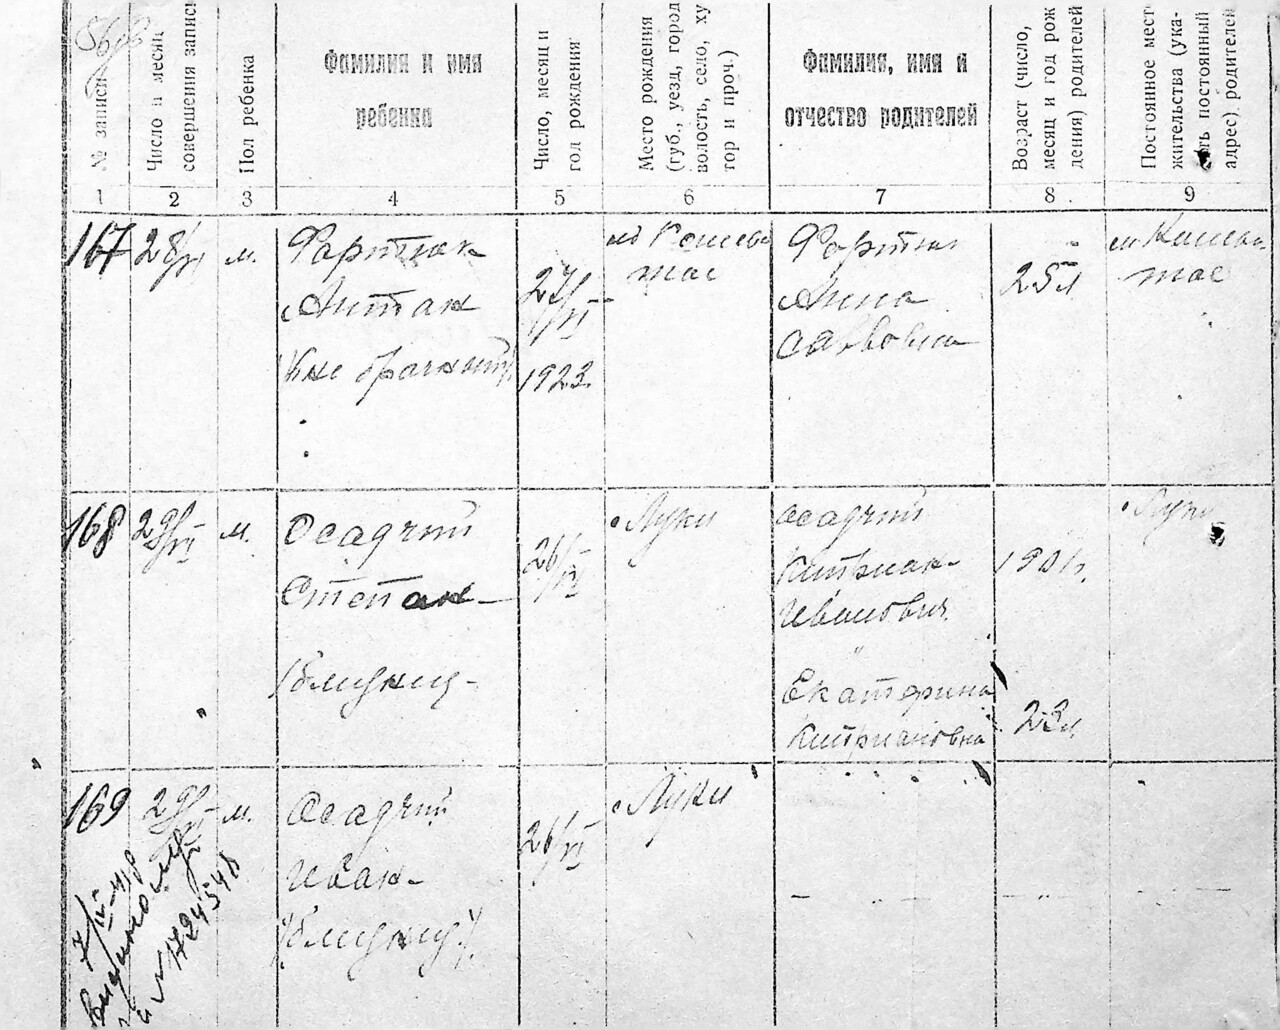 № записи
Число и месяц
совершения записи
Пол ребенка
Фамилия и имя
ребенка
Число, месяц и
год рождения
Место рождения
(губ., уезд, город
волость, село, ху
тор и проч.)
Фамилия, имя и
отчество родителей
Возраст (число,
месяц и год рож
дения) родителей
Постоянное мест
жительства (ука-
постоянный
адрес) родителей
1 2 3 4 5 6 7 8 9
167 28/VI м.
Фартнак
Антон
27/VI
1923
25 л
Анна
Саввовна
168 29/VI м.
Осадчий
Степан
/близнец
26/VI
Луки
Осадчий
Киприан
Иванович
1901 г.
Екатерина
Киприановна
23 л
Луки
169 29/VI м.
Осадчий
Иван
/близнец/
26/VI
Луки